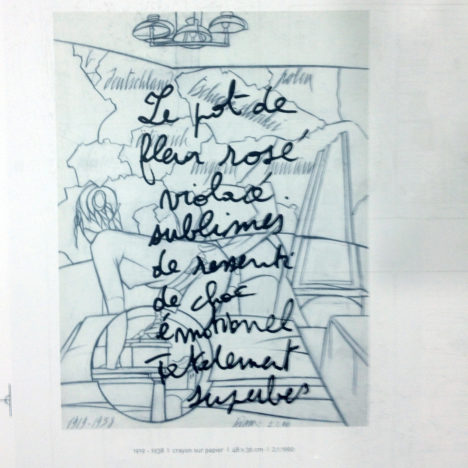 Deutschland
Polen
Le pot de
fleur rosé
violacé.
sublimes
de ressenti
de choc
émotionel
superbes
1919-1938
1919 - 1938 | crayon sur papier